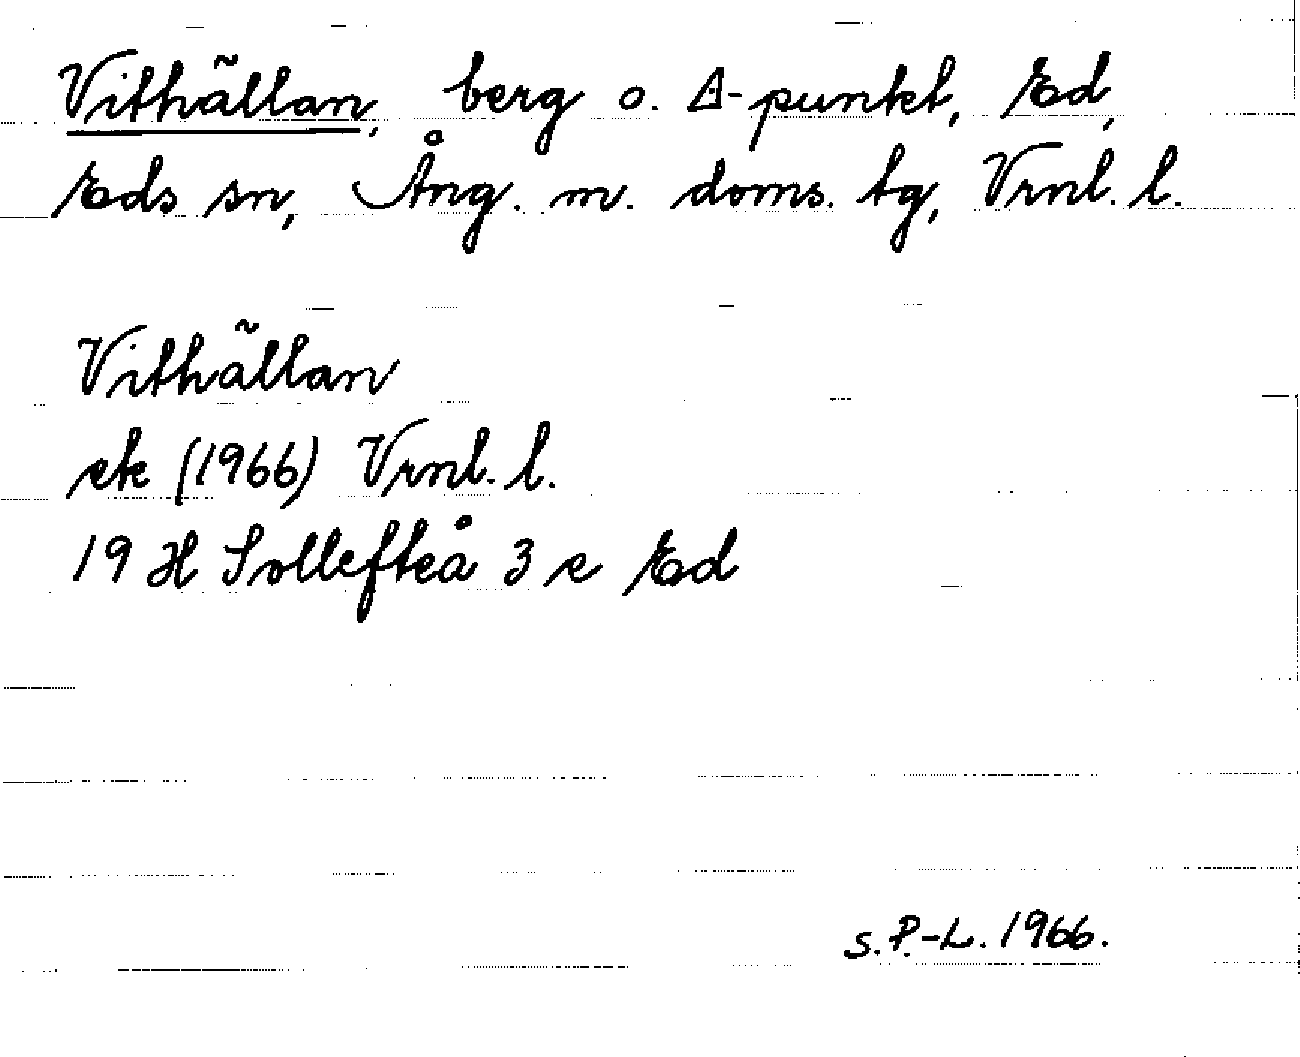 Vithällan, berg o. Δ-punkt, Ed,
Eds sn, Ång. m. doms. tg, Vrnl. l.
Vithällan
ek (1966) Vrnl. l.
19 H Sollefteå 3 e Ed
S. P.-L. 1966.